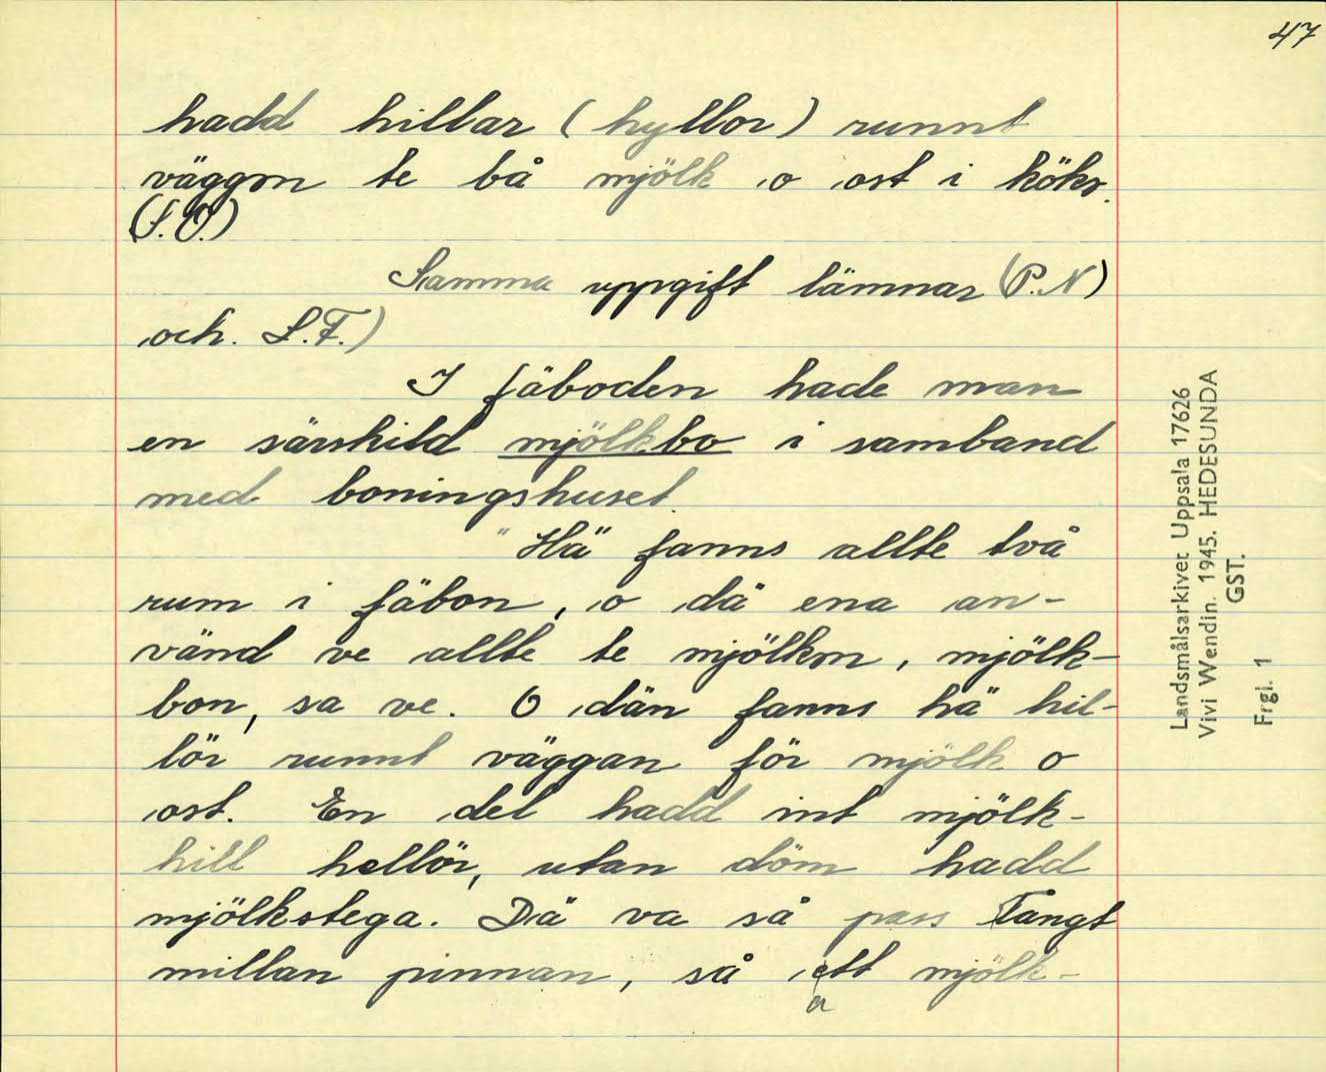 47
hadd hillar (hyllor) runnt
väggen te bå mjölk o ost i köks.
(S.O.)
Samma uppgift lämnar (P.N)
och. L.F.)
I fäboden hade man
en särskild mjölkbo i samband
med boningshuset.
"Hä" fanns allte två
rum i fäbon, o dä ena an-
vänd ve allte te mjölken, mjölk-
bon, sa ve. O dän fanns hä hil-
lör runnt väggan för mjölk o
ost. En del hadd int mjölk-
hill hellör, utan döm hadd
mjölkstega. Dä va så pass långt
millan pinnan, så att mjölk-
Landsmålsarkivet Uppsala 17626
Vivi Wendin. 1945. HEDESUNDA
GST.
Frgl. 1